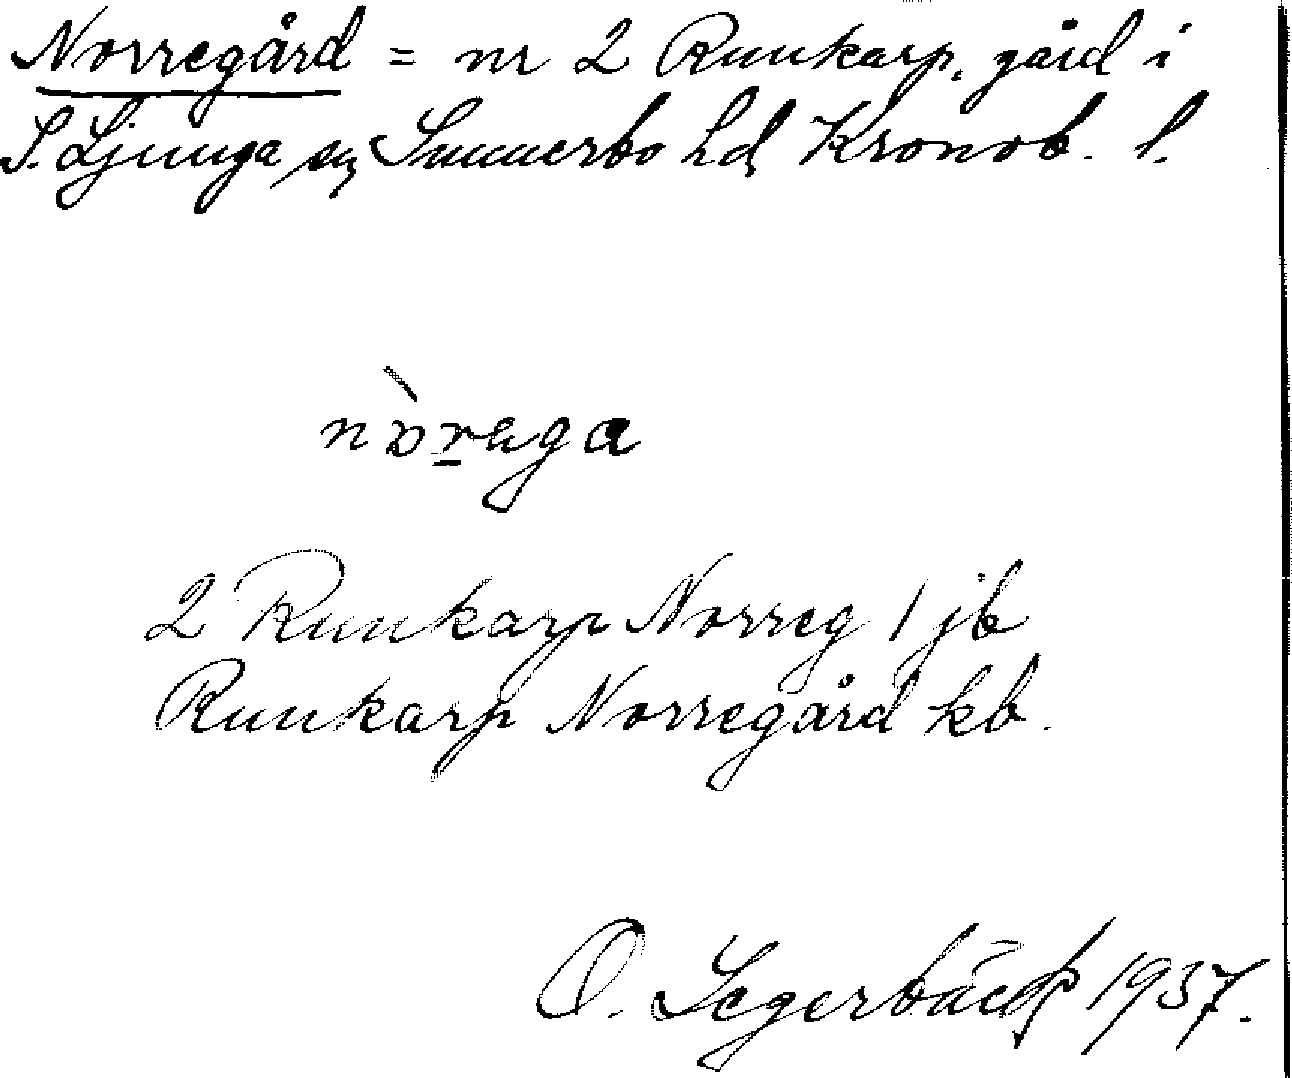 Norregård = nr 2 Runkarp, gård i
S. Ljunga sn, Sunnerbo hd, Kronob. l.
2 Runkarp Norreg 1 jb
Runkarp Norregård kb.
O. Segerbäck 1937.